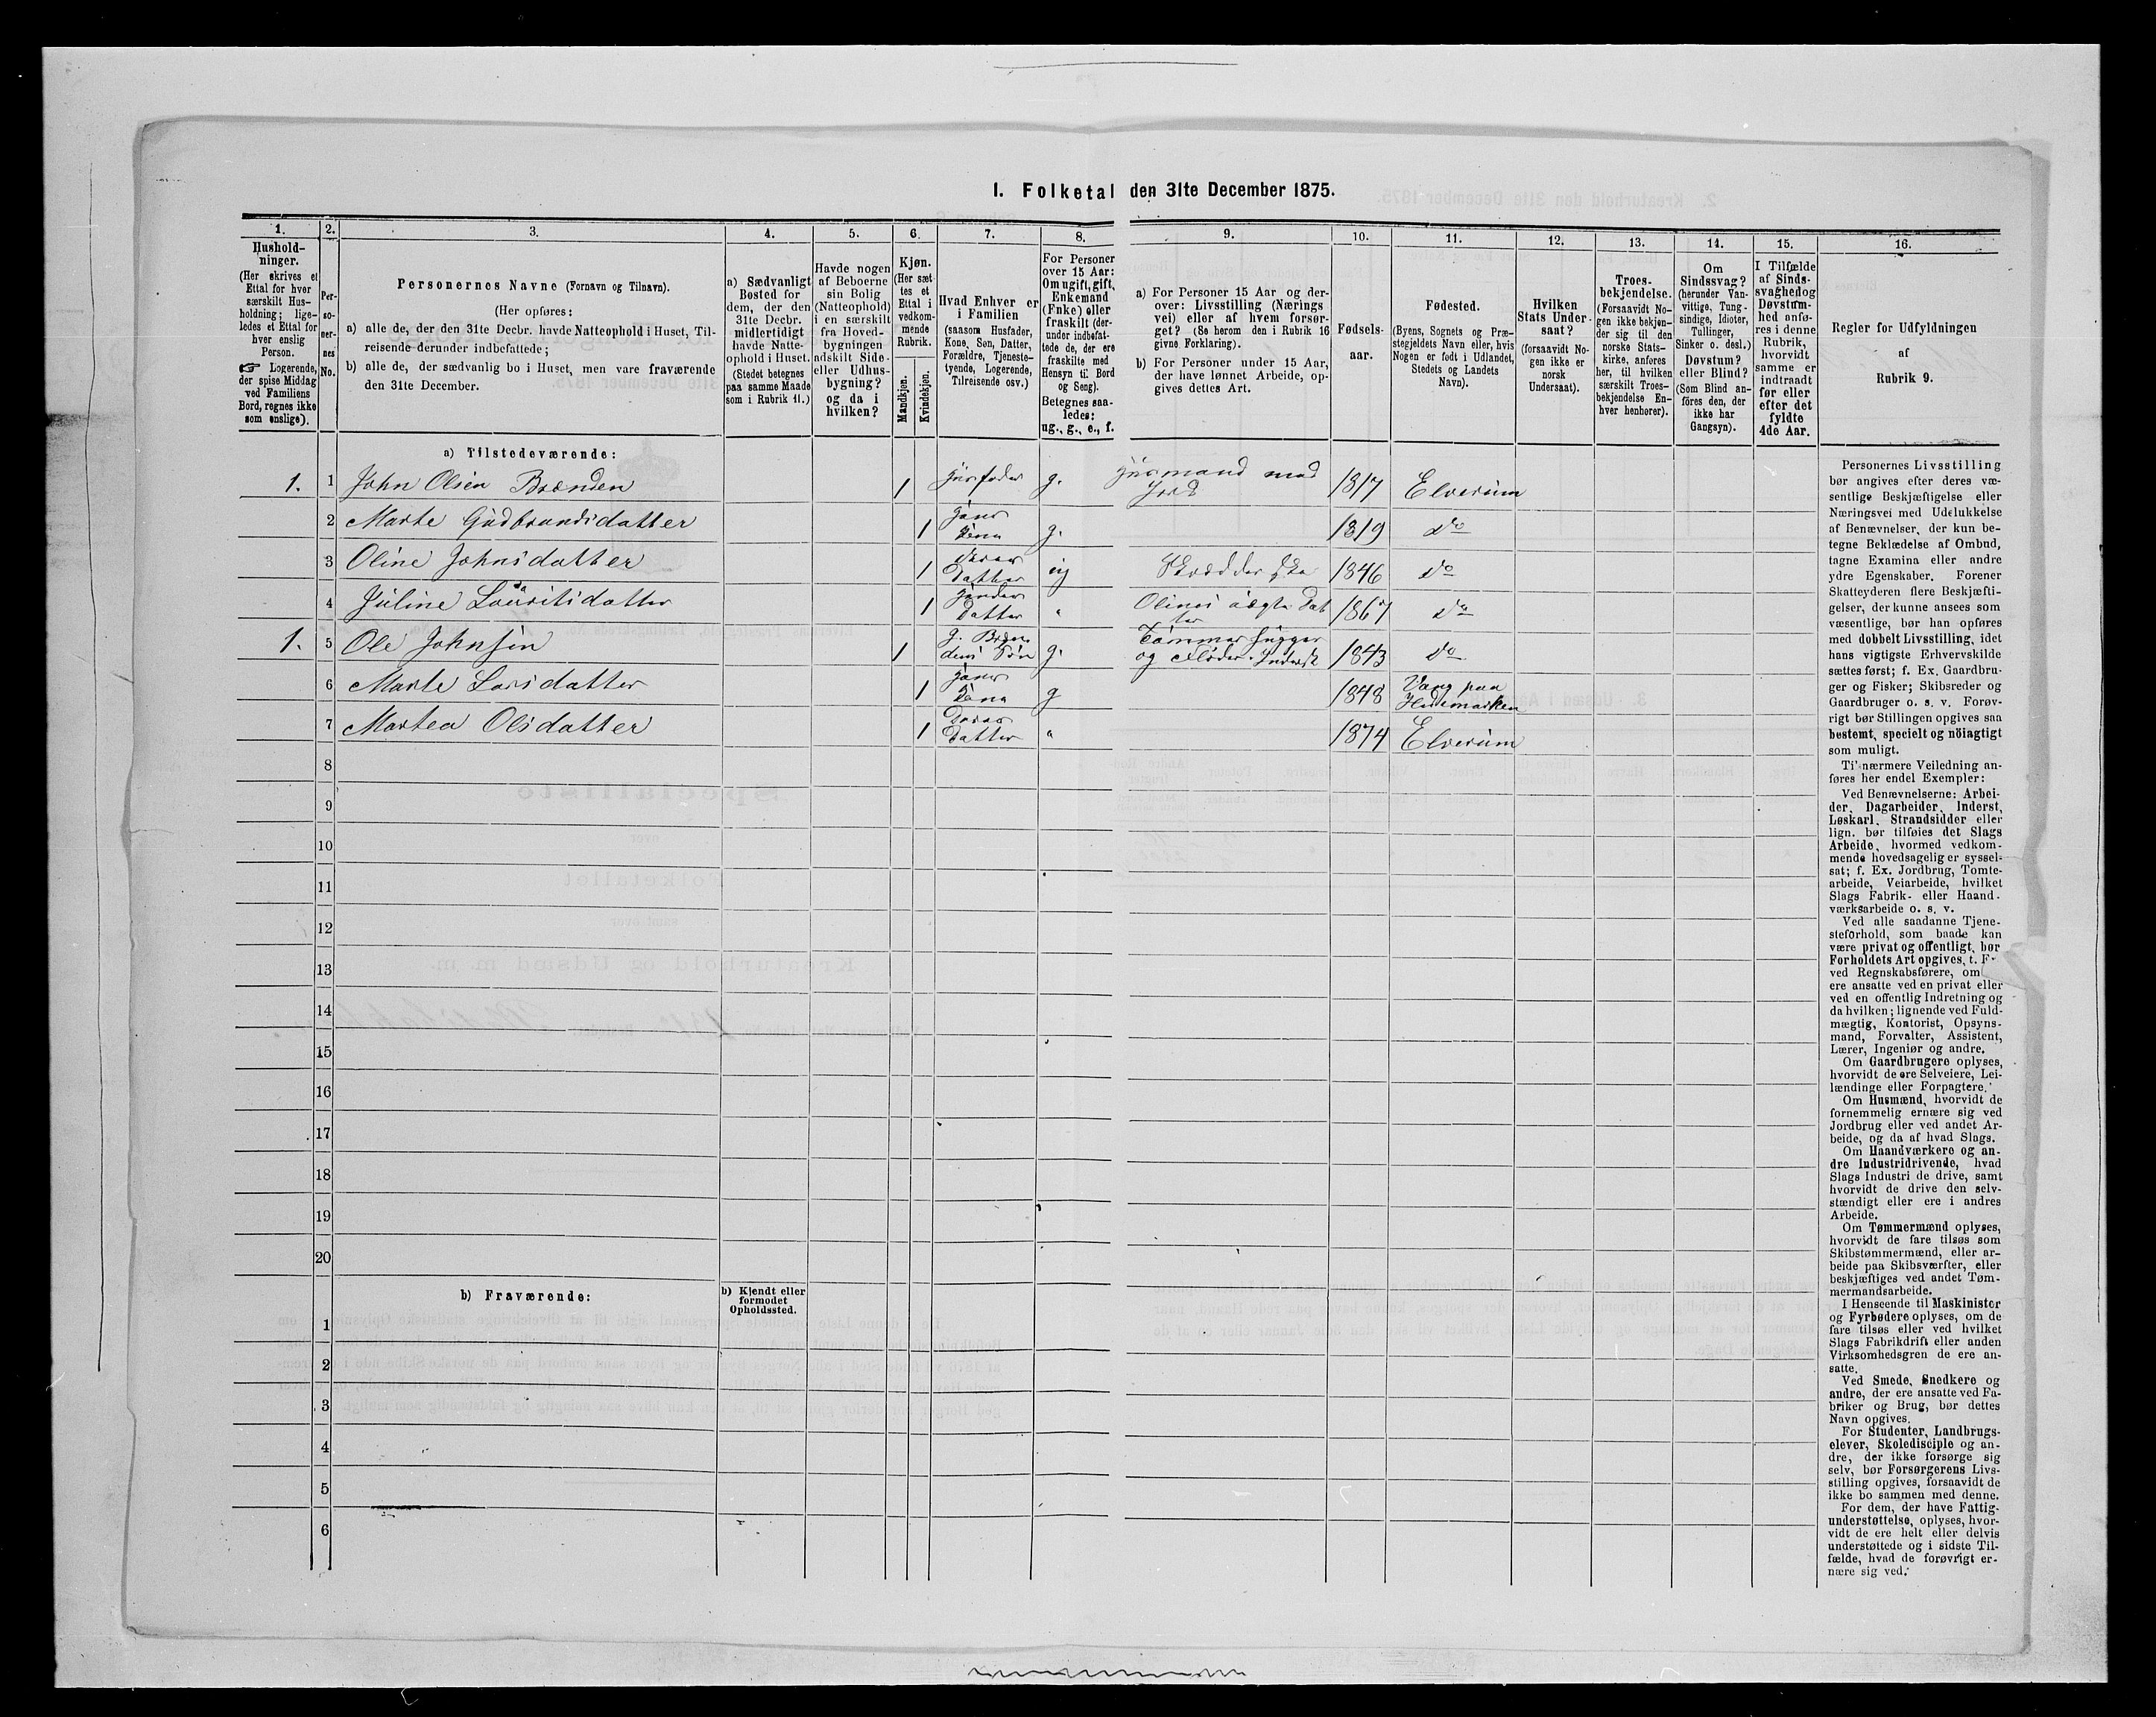 I. Folketal den 31te December 1875.
1.
Hushold-
ninger.
(Her skrives et
Ettal for hver
særskilt Hus-
holdning; lige-
ledes et Ettal for
hver enslig
Person.
☞ Logerende,
der spise Middag
ved Familiens
Bord, regnes ikke
som enslige).
2.
Per-
so-
ner-
nes
No.
3.
Personernes Navne (Fornavn og Tilnavn).
(Her opføres:
a) alle de, der den 31te Decbr. havde Natteophold i Huset, Til-
reisende derunder indbefattede;
b) alle de, der sædvanlig bo i Huset, men vare fraværende
den 31te December.
4.
a) Sædvanligt
Bosted for
dem, der den
31te Decbr.
midlertidigt
havde Natte-
ophold i Huset.
(Stedet betegnes
paa samme Maade
som i Rubrik 11.)
5.
Havde nogen
af Beboerne
sin Bolig
(Natteophold)
i en særskilt
fra Hoved-
bygningen
adskilt Side-
eller Udhus-
bygning?
og da i
hvilken?
6.
Kjøn.
(Her sæt-
tes et
Ettal i
vedkom-
mende
Rubrik.
Mandkjøn.
Kvindekjøn.
7.
Hvad Enhver er
i Familien
(saasom Husfader,
Kone, Søn, Datter,
Forældre, Tjeneste-
tyende, Logerende,
Tilreisende osv.)
8.
For Personer
over 15 Aar:
Om ugift, gift,
Enkemand
(Enke) eller
fraskilt (der-
under indbefat-
tede de, der ere
fraskilte med
Hensyn til Bord
og Seng).
Betegnes saa-
ledes:
ug., g., e., f.
9.
a) For Personer 15 Aar og der-
over: Livsstilling (Nærings
vei) eller af hvem forsør-
get? (Se herom den i Rubrik 16
givne Forklaring).
b) For Personer under 15 Aar,
der have lønnet Arbeide, op-
gives dettes Art.
10.
Fødsels-
aar.
11.
Fødested.
(Byens, Sognets og Præ-
stegjeldets Navn eller, hvis
Nogen er født i Udlandet,
Stedets og Landets
Navn).
12.
Hvilken
Stats Under-
saat?
(forsaavidt No-
gen ikke er
norsk
Undersaat).
13.
Troes-
bekjendelse.
(Forsaavidt No-
gen ikke bekjen-
der sig til den
norske Stats-
kirke, anføres
her, til hvilken
særskilt Troes-
bekjendelse En-
hver henhører).
14.
Om
Sindssvag?
(herunder Van-
vittige, Tung-
sindige, Idioter,
Tullinger,
Sinker o. desl.)
Døvstum?
eller Blind?
(Som Blind an-
føres den, der
ikke har
Gangsyn).
15.
I Tilfælde
af Sinds-
svaghed og
Døvstum-
hed anfø-
res i denne
Rubrik,
hvorvidt
samme er
indtraadt
før eller
efter det
fyldte
4de Aar.
16.
Regler for Udfyldningen
af
Rubrik 9.
a) Tilstedeværende:
1. 1 John Olsen Brænden 1 Husfader g. Husmand med Jord 1817 Elverum
2 Marte Gudbrandsdatter 1 Hans Kona g. 1819 do
3 Oline Johnsdatter 1 Deres Datter ug Skrædderske 1846 do
4 Juline Lauritsdatter 1 Datter " Olines uægte Datter 1867 do
1. 5 Ole Johnsen 1 Søn g. Tømmerhugger og Fløder. Inderst 1843 do
6 Marte Larsdatter 1 Hans Kona g 1848 Vang paa Hedemarken
7 Martea Olsdatter 1 Deres Datter " 1874 Elverum
8
9
10
11
12
13
14
15
16
17
18
19
20
b) Fraværende:
b) Kjendt eller
formodet
Opholdssted.
1
2
3
4
5
6
Personernes Livsstilling
bør angives efter deres væ-
sentlige Beskjæftigelse eller
Næringsvei med Udelukkelse
af Benævnelser, der kun be-
tegne Beklædelse af Ombud,
tagne Examina eller andre
ydre Egenskaber. Forener
Skatteyderen flere Beskjæfti-
gelser, der kunne ansees som
væsentlige, bør han opføres
med dobbelt Livsstilling, idet
hans vigtigste Erhvervskilde
sættes først; f. Ex. Gaardbru-
ger og Fisker; Skibsreder og
Gaardbruger o. s. v. Forøv-
rigt bør Stillingen opgives saa
bestemt, specielt og nöiagtigt
som muligt.
Til nærmere Veiledning an-
føres her endel Exempler:
Ved Benævnelserne: Arbei-
der, Dagarbeider, Inderst,
Løskarl, Strandsidder eller
lign. bør tilføies det Slags
Arbeide, hvormed vedkom-
mende hovedsagelig er syssel-
sat; f. Ex. Jordbrug, Tomte-
arbeide, Veiarbeide, hvilket
Slags Fabrik- eller Haand-
værksarbeide o. s. v.
Ved alle saadanne Tjene-
steforhold, som baade kan
være privat og offentligt, bør
Forholdets Art opgives, t. E
ved Regnskabsførere, om
ere ansatte ved en privat eller
ved en offentlig Indretning og
da hvilken; lignende ved Fuld-
mægtig, Kontorist, Opsyns-
mand, Forvalter, Assistent,
Lærer, Ingeniør og andre.
Om Gaardbrugere oplyses,
hvorvidt de ere Selveiere, Lei-
lændinge eller Forpagtere.
Om Husmænd, hvorvidt de
fornemmelig ernære sig ved
Jordbrug eller ved andet Ar-
beide, og da af hvad Slags.
Om Haandværkere og an-
dre Industridrivende, hvad
Slags Industri de drive, samt
hvorvidt de drive den selv-
stændigt eller ere i andres
Arbeide.
Om Tømmermænd oplyses,
hvorvidt de fare tilsøs som
Skibstømmermænd, eller ar-
beide paa Skibsværfter, eller
beskjæftiges ved andet Tøm-
mermandsarbeide.
I Henseende til Maskinister
og Fyrbødere oplyses, om de
fare tilsøs eller ved hvilket
Slags Fabrikdrift eller anden
Virksomhedsgren de ere an-
satte.
Ved Smede, Snedkere og
andre, der ere ansatte ved Fa-
briker og Brug, bør dettes
Navn opgives.
For Studenter, Landbrugs-
elever, Skoledisciple og an-
dre, der ikke forsørge sig
selv, bør Forsørgerens Livs-
stilling opgives, forsaavidt de
ikke bo sammen med denne.
For dem, der have Fattig-
understøttelse, oplyses, hvor-
vidt de ere helt eller delvis
understøttede og i sidste Til-
fælde, hvad de forøvrigt er-
nære sig ved.